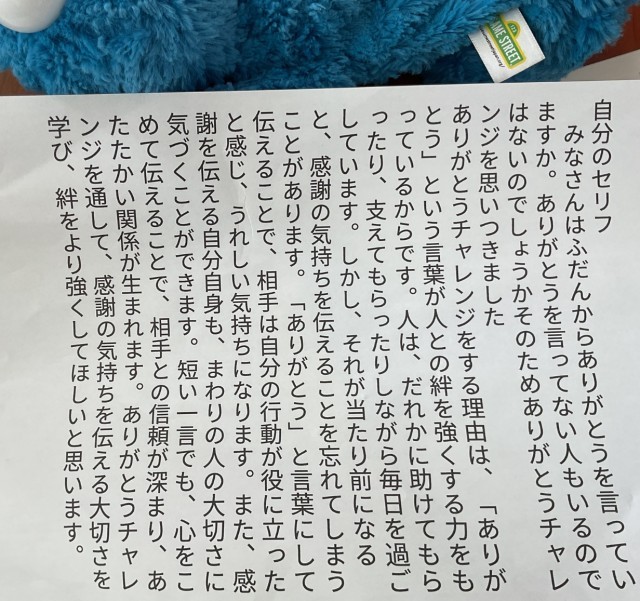 SESAME STREET
自分のセリフ
みなさんはふだんからありがとうを言ってい
ますか。ありがとうを言ってない人もいるので
はないのでしょうかそのためありがとうチャレ
ンジを思いつきました
ありがとうチャレンジをする理由は、「ありが
とう」という言葉が人との絆を強くする力をも
っているからです。人は、だれかに助けてもら
ったり、支えてもらったりしながら毎日を過ご
しています。しかし、それが当たり前になる
と、感謝の気持ちを伝えることを忘れてしまう
ことがあります。「ありがとう」と言葉にして
伝えることで、相手は自分の行動が役に立った
と感じ、うれしい気持ちになります。また、感
謝を伝える自分自身も、まわりの人の大切さに
気づくことができます。短い一言でも、心をこ
めて伝えることで、相手との信頼が深まり、あ
たたかい関係が生まれます。ありがとうチャレ
ンジを通して、感謝の気持ちを伝える大切さを
学び、絆をより強くしてほしいと思います。